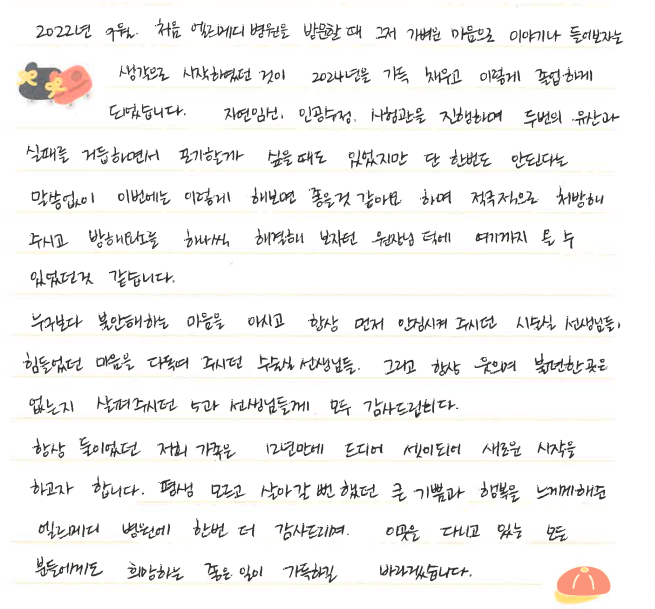 2022년 9월. 처음 엘르메디 병원을 방문할 때 그저 가벼운 마음으로 이야기나 들어보자는
생각으로 시작하였던 것이 2024년을 가득 채우고 이렇게 졸업하게
되었습니다. 자연임신, 인공수정, 시험관을 진행하며 두번의 유산과
실패를 거듭하면서 포기할까 싶을때도 있었지만 단 한번도 안된다는
말씀없이 이번에는 이렇게 해보면 좋을것 같아요 하며 적극적으로 처방해
주시고 방해요소를 하나씩 해결해 보자던 원장님 덕에 여기까지 올 수
있었던것 같습니다.
누구보다 불안해하는 마음을 아시고 항상 먼저 안심시켜 주시던 시술실 선생님들,
힘들었던 마음을 다독여 주시던 수술실 선생님들. 그리고 항상 웃으며 불편한곳은
없는지 살펴주시던 5과 선생님들께 모두 감사드립니다.
항상 둘이였던 저희 가족은 12년만에 드디어 셋이되어 새로운 시작을
하고자 합니다. 평생 모르고 살아갈 뻔 했던 큰 기쁨과 행복을 느끼게해준
엘르메디 병원에 한번 더 감사드리며. 이곳을 다니고 있는 모든
분들에게도 희망하는 좋은 일이 가득하길 바라겠습니다.